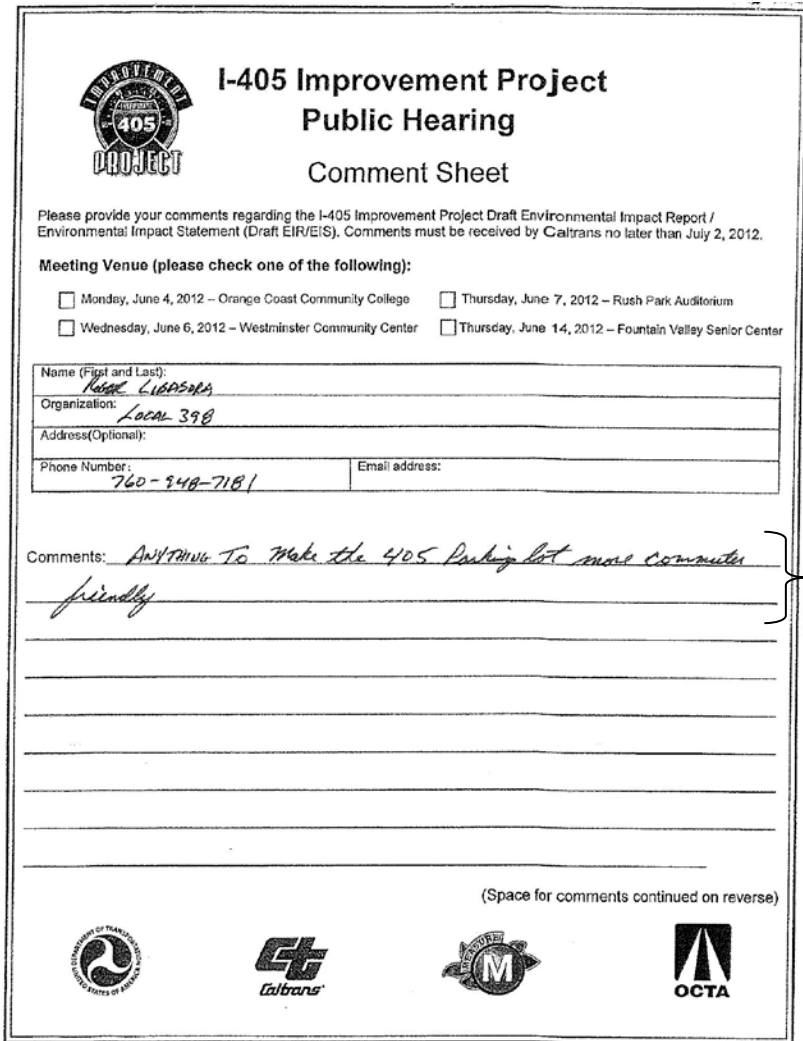 IMPROVEMENT
405
PROJECT
I-405 Improvement Project
Public Hearing
Comment Sheet
Please provide your comments regarding the I-405 Improvement Project Draft Environmental Impact Report /
Environmental Impact Statement (Draft EIR/EIS). Comments must be received by Caltrans no later than July 2, 2012.
Meeting Venue (please check one of the following):
Monday, June 4, 2012 – Orange Coast Community College
Thursday, June 7, 2012 – Rush Park Auditorium
Wednesday, June 6, 2012 – Westminster Community Center
Thursday, June 14, 2012 – Fountain Valley Senior Center
Name (First and Last):
Organization:
LOCAL 398
Address(Optional):
Phone Number:
Email address:
760-948-7181
Comments: ANYTHING To Make the 405 Parking lot more commuter
friendly
(Space for comments continued on reverse)
DEPARTMENT OF TRANSPORTATION
UNITED STATES OF AMERICA
Ct
Caltrans
MEASURE
M
OCTA